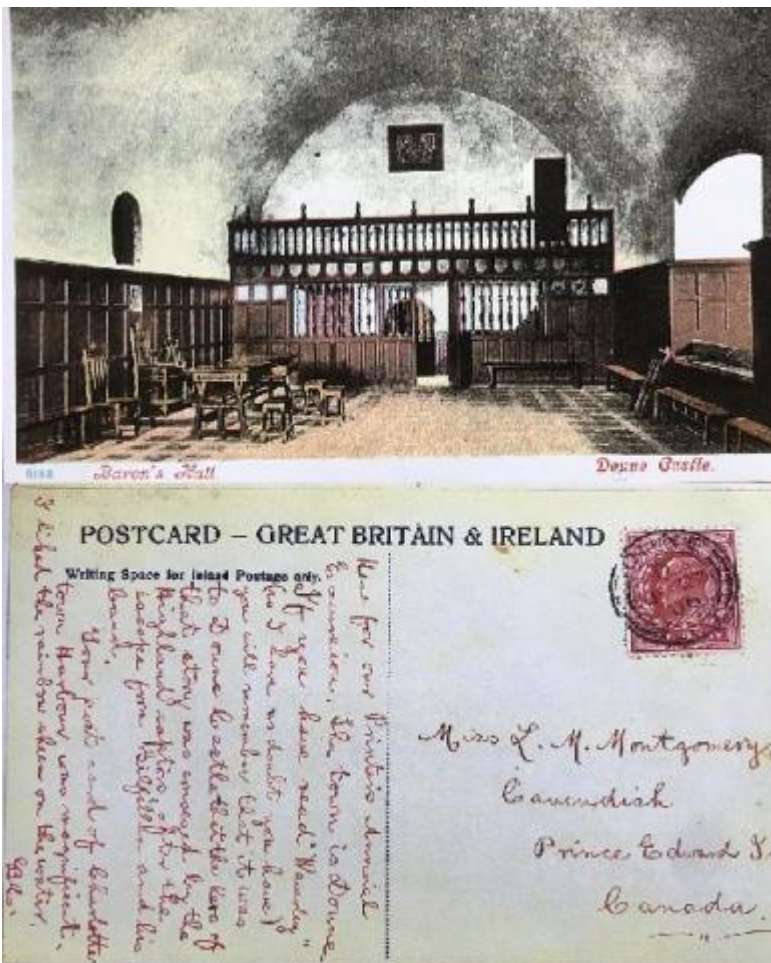 Baron's Hall
Doune Castle.
POSTCARD – GREAT BRITAIN & IRELAND
Writing Space for Inland Postage only.
Here for our Printers Annual
Excursion. The town is Doune.
If you have read "Waverley"
(as I have no doubt you have)
you will remember that it was
to Doune Castle that the hero of
that story was conveyed by the
Highland captors after the
escape from Gilfillan and his
band.
Your post card of Charlotte
town Harbour was magnificent.
I liked the rainbow sheen on the water.
Miss L. M. Montgomery
Cavendish
Prince Edward
Canada.